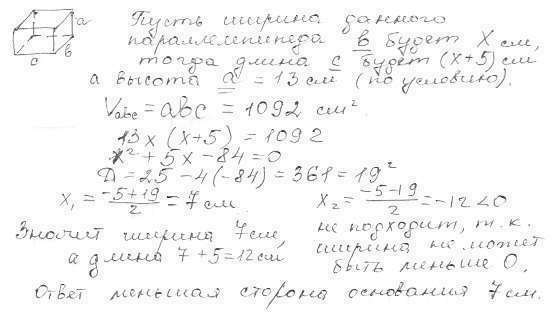 a
b
c
Пусть ширина данного
параллелепипеда в будет X см,
тогда длина с будет (x+5) см
а высота a = 13 см (по условию).
Vabc = abc = 1092 см²
13x (x+5) = 1092
x² + 5x - 84 = 0
D = 25 - 4(-84) = 361 = 19²
x₁ = (-5+19)/2 = 7 см. x₂ = (-5-19)/2 = -12 < 0
Значит ширина 7 см, не подходит, т.к.
а длина 7 + 5 = 12 см ширина не может
быть меньше 0.
Ответ меньшая сторона основания 7 см.